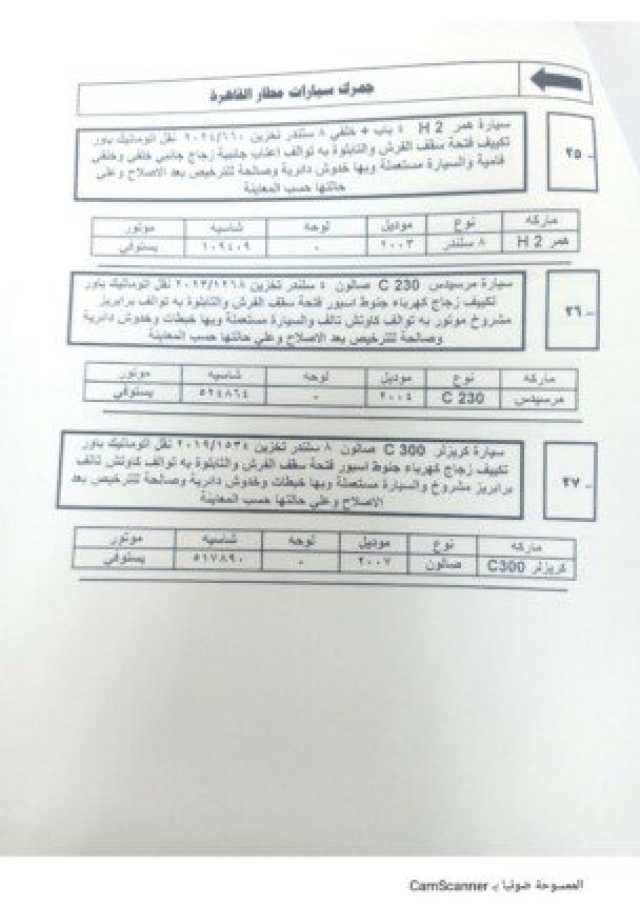 جمرك سيارات مطار القاهرة
٢٥ -
سيارة همر H 2 ٤ باب + خلفي ٨ سلندر تخزين ٢٠٢٤/٦٦٠ نقل اتوماتيك باور
تكييف فتحة سقف الفرش والتابلوة به توالف اعتاب جانبية زجاج جانبي خلفي وخلفي
فامية والسيارة مستعملة وبها خدوش دائرية وصالحة للترخيص بعد الاصلاح وعلي
حالتها حسب المعاينة
ماركه نوع موديل لوحه شاسيه موتور
همر H 2 ٨ سلندر ٢٠٠٣ - ١٠٩٤٠٩ يستوفي
٢٦ -
سيارة مرسيدس C 230 صالون ٤ سلندر تخزين ٢٠٢٣/١٢٦٨ نقل اتوماتيك باور
تكييف زجاج كهرباء جنوط اسبور فتحة سقف الفرش والتابلوة به توالف برابريز
مشروخ موتور به توالف كاوتش تالف والسيارة مستعملة وبها خبطات وخدوش دائرية
وصالحة للترخيص بعد الاصلاح وعلي حالتها حسب المعاينة
ماركه نوع موديل لوحه شاسيه موتور
مرسيدس C 230 ٢٠٠٤ - ٥٢٤٨٦٤ يستوفي
٢٧ -
سيارة كريزلر C 300 صالون ٨ سلندر تخزين ٢٠١٩/١٥٣٤ نقل اتوماتيك باور
تكييف زجاج كهرباء جنوط اسبور فتحة سقف الفرش والتابلوة به توالف كاوتش تالف
برابريز مشروخ والسيارة مستعملة وبها خبطات وخدوش دائرية وصالحة للترخيص بعد
الاصلاح وعلي حالتها حسب المعاينة
ماركه نوع موديل لوحه شاسيه موتور
كريزلر C300 صالون ٢٠٠٧ - ٥١٧٨٩٠ يستوفي
الممسوحة ضوئيا بـ CamScanner